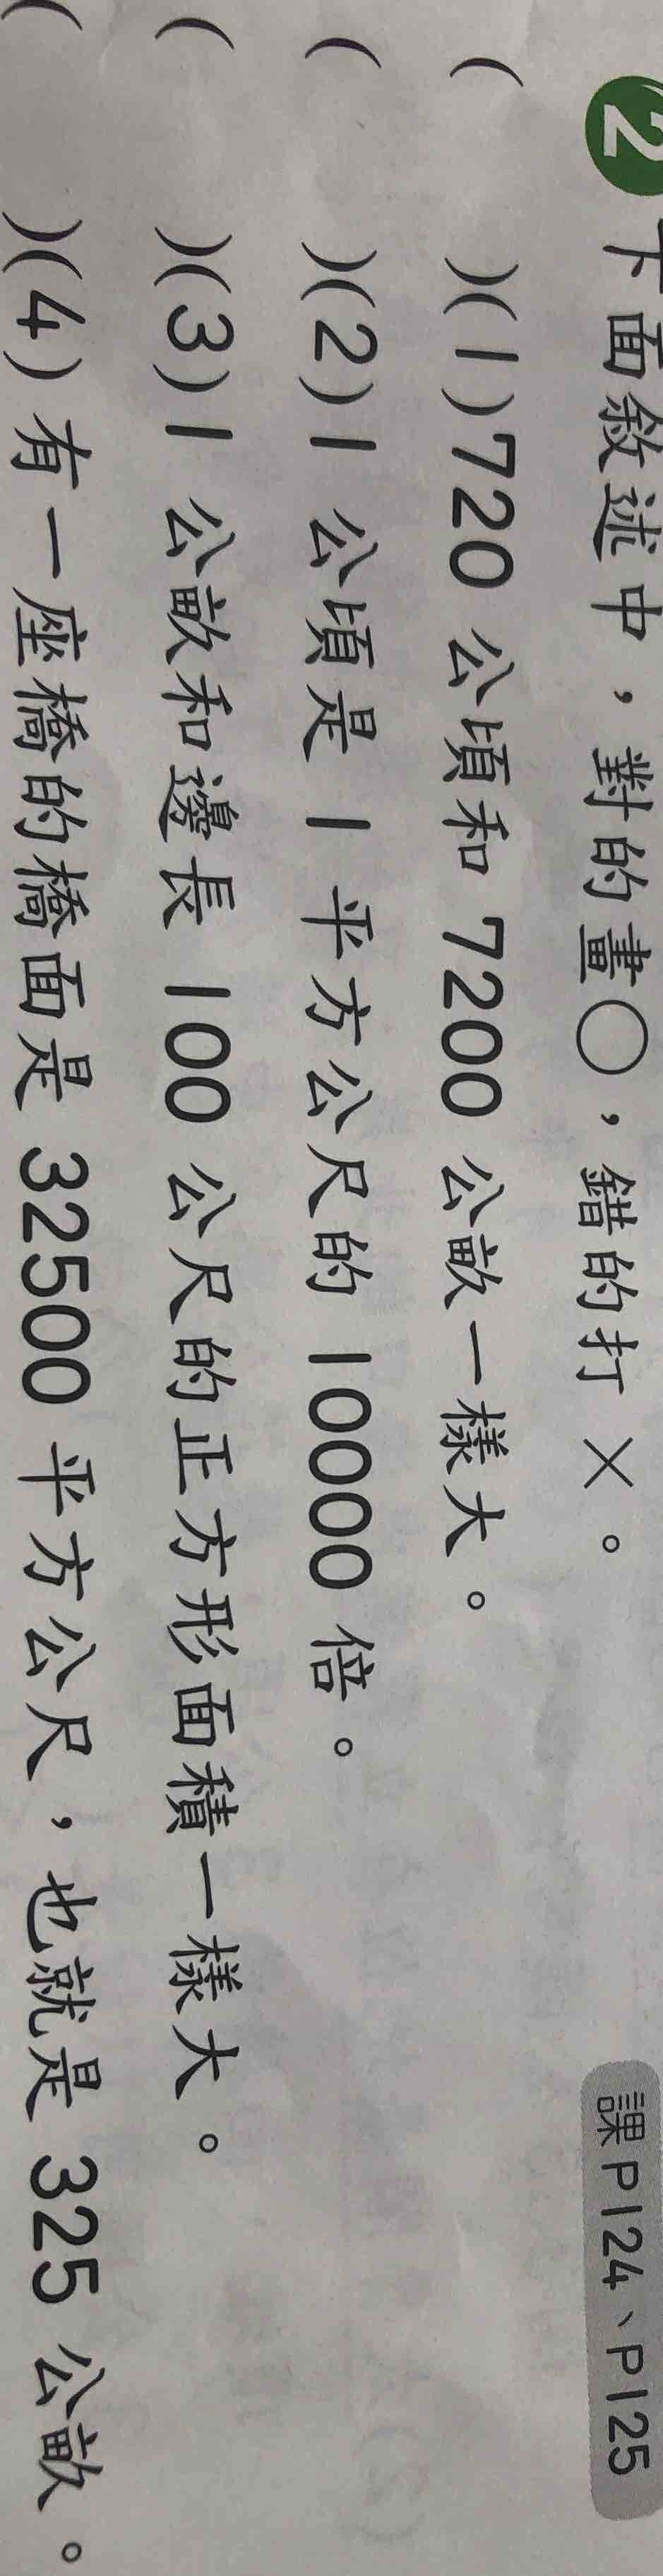 2 下面敘述中，對的畫○，錯的打 ×。
課P124、P125
(　　)(1)720 公頃和 7200 公畝一樣大。
(　　)(2)1 公頃是 1 平方公尺的 10000 倍。
(　　)(3)1 公畝和邊長 100 公尺的正方形面積一樣大。
(　　)(4)有一座橋的橋面是 32500 平方公尺，也就是 325 公畝。